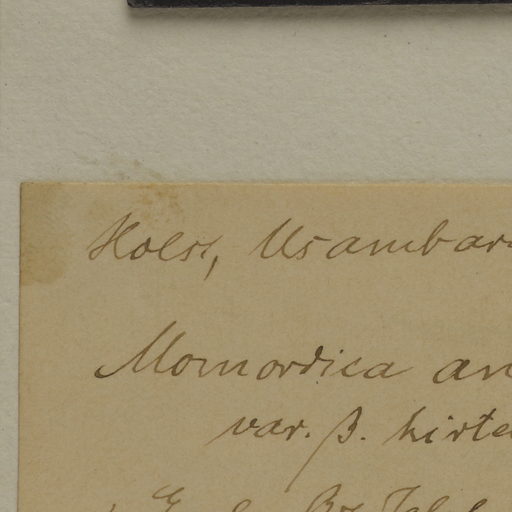 Holst, Usambar
Momordica an
var. β. hirte